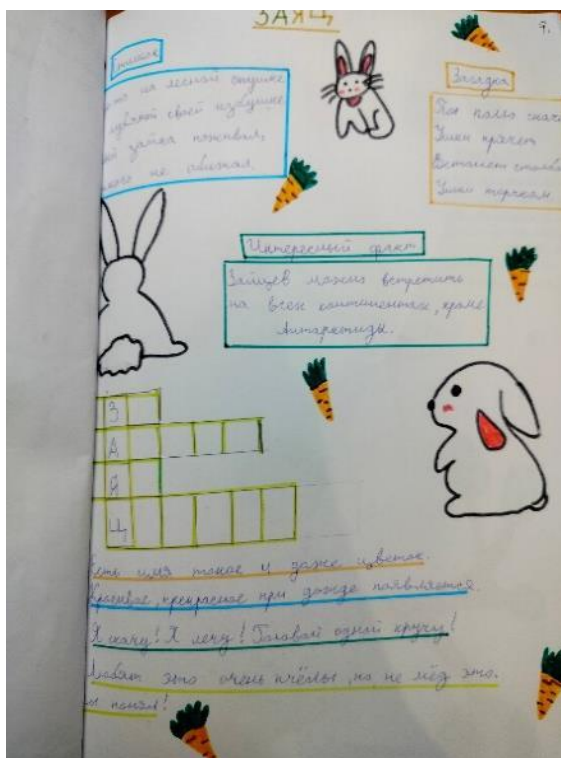 ЗАЯЦ
9.
на лесной опушке
своей избушке
зайка поживал,
не обижал.
Загадка
По полю скачет
Ушки прячет
Встанет столбом
Ушки торчком.
Интересный факт
Зайцев можно встретить
на всех континентах, кроме
Антарктиды.
З
А
Я
Ц
Есть имя такое и даже цветок.
Красивое, прекрасное при дожде появляется.
Я скачу! Я лечу! Головой одной кручу!
Любят это очень пчёлы, но не мёд это.
ы понял!